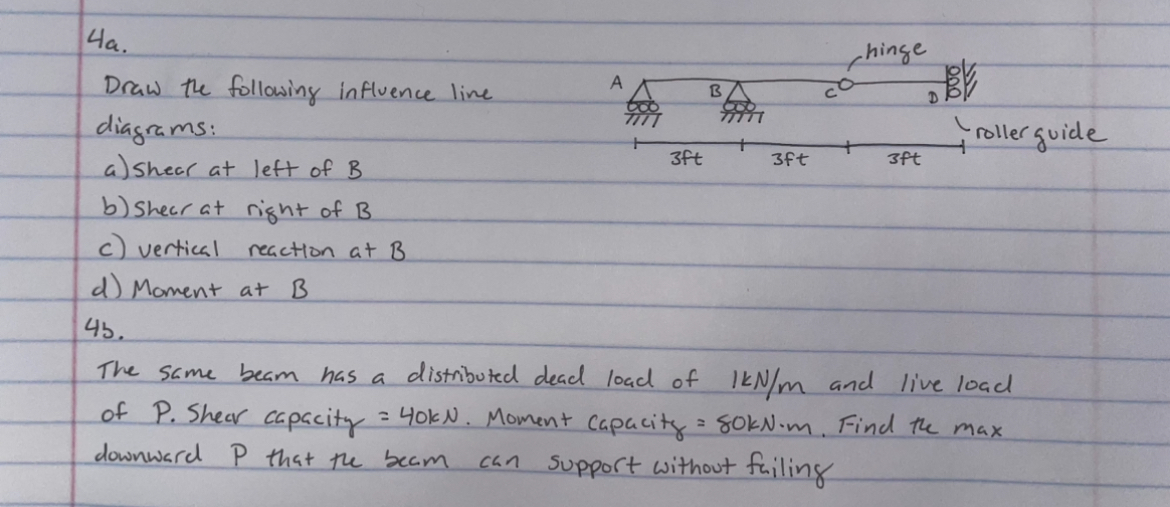 4a.
Draw the following influence line
diagrams:
a) Shear at left of B
b) Shear at right of B
c) vertical reaction at B
d) Moment at B
hinge
A
B
C
D
roller guide
3ft
3ft
3ft
4b.
The same beam has a distributed dead load of 1kN/m and live load
of P. Shear capacity = 40kN. Moment capacity = 80kN·m. Find the max
downward P that the beam can support without failing